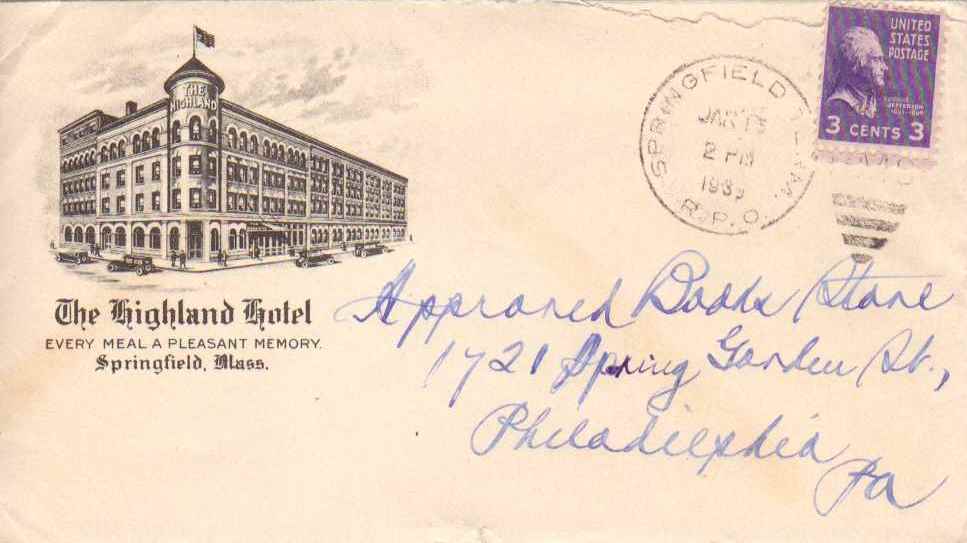 THE
HIGHLAND
The Highland Hotel
EVERY MEAL A PLEASANT MEMORY.
Springfield, Mass.
SPRINGFIELD TERM.
JAN
2 PM
193
R.P.O.
UNITED
STATES
POSTAGE
JEFFERSON
3 CENTS 3
Approved Books Store
1721 Spring Garden St.,
Philadielphia
Pa